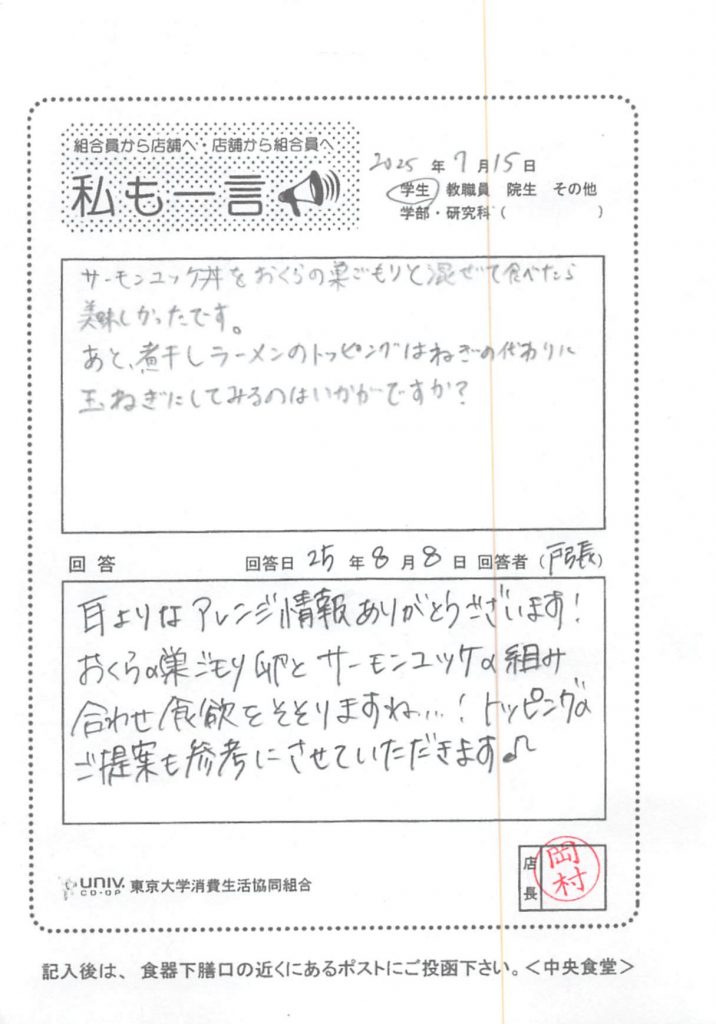 組合員から店舗へ・店舗から組合員へ
私も一言
2025 年 7 月 15 日
学生 教職員 院生 その他
学部・研究科 ( )
サーモンユッケ丼をおくらの巣ごもりと混ぜて食べたら
美味しかったです。
あと、煮干しラーメンのトッピングはねぎの代わりに
玉ねぎにしてみるのはいかがですか?
回答 回答日 25 年 8 月 8 日 回答者 (戸張)
耳よりなアレンジ情報ありがとうございます!
おくらの巣ごもり卵とサーモンユッケの組み
合わせ食欲をそそりますね…! トッピングの
ご提案も参考にさせていただきます♪
店長
岡村
UNIV. CO-OP 東京大学消費生活協同組合
記入後は、食器下膳口の近くにあるポストにご投函下さい。<中央食堂>